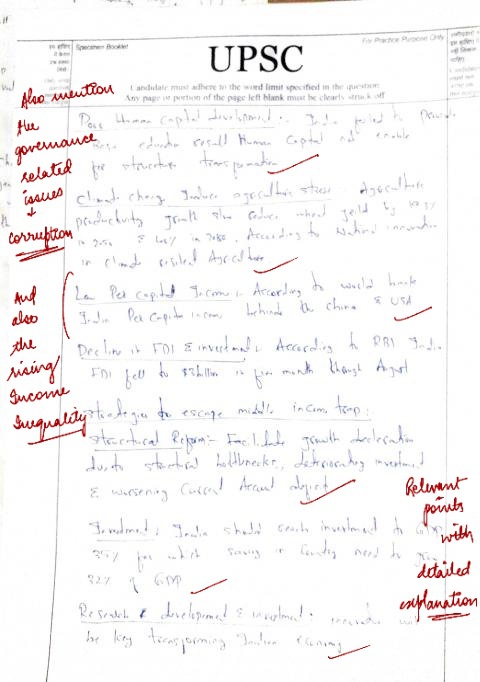 Specimen Booklet
For Practice Purpose Only
UPSC
Candidate must adhere to the word limit specified in the question
Any page or portion of the page left blank must be clearly struck off
Also mention
the
governance
related
issues
+
corruption
Human Capital development :- India failed to provide
Human Capital not enable
for structure transformation
Climate change Induce agriculture stress : Agriculture
productivity growth also reduce wheat yield by 19.3%
in 2050 & 40% in 2080. According to National innovation
in climate resilient Agriculture
And
also
the
rising
Income
Inequality
Low Per capital Income :- According to world bank
India Per Capita income behind the china & USA
Decline in FDI & investment : According to RBI India
FDI fell to $3 billion in five month through August
Strategies to escape middle income trap :
Structural Reform :- Facilitate growth decleration
due to structural bottlenecks, deteriorating investment
& worsening Current Account
Investment : India should search investment to GDP
35% for which saving in Country need to
32% of GDP
Relevant
points
with
detailed
explanation
Research & development & investment : innovation
be key transforming Indian economy